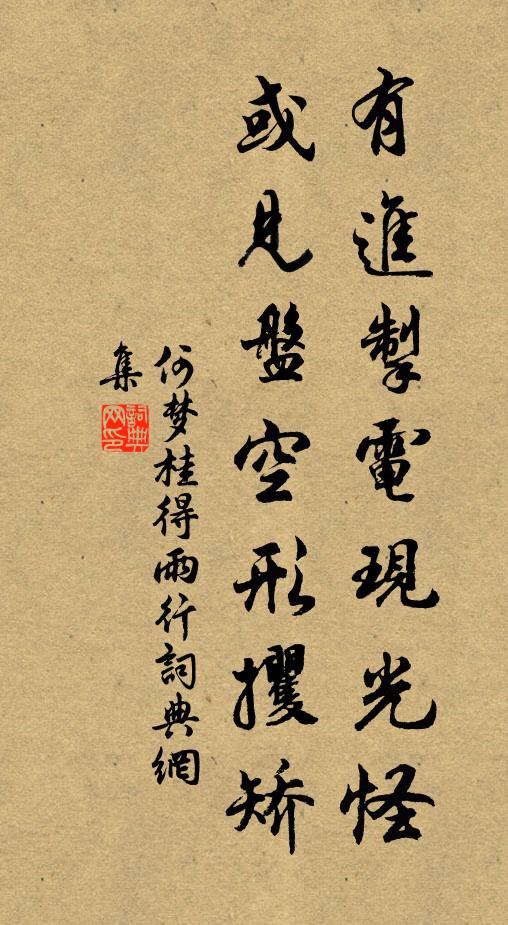 有進掣電現光怪
或見盤空形攫矯
何梦桂得雨行詞典網
集
詞典
网印